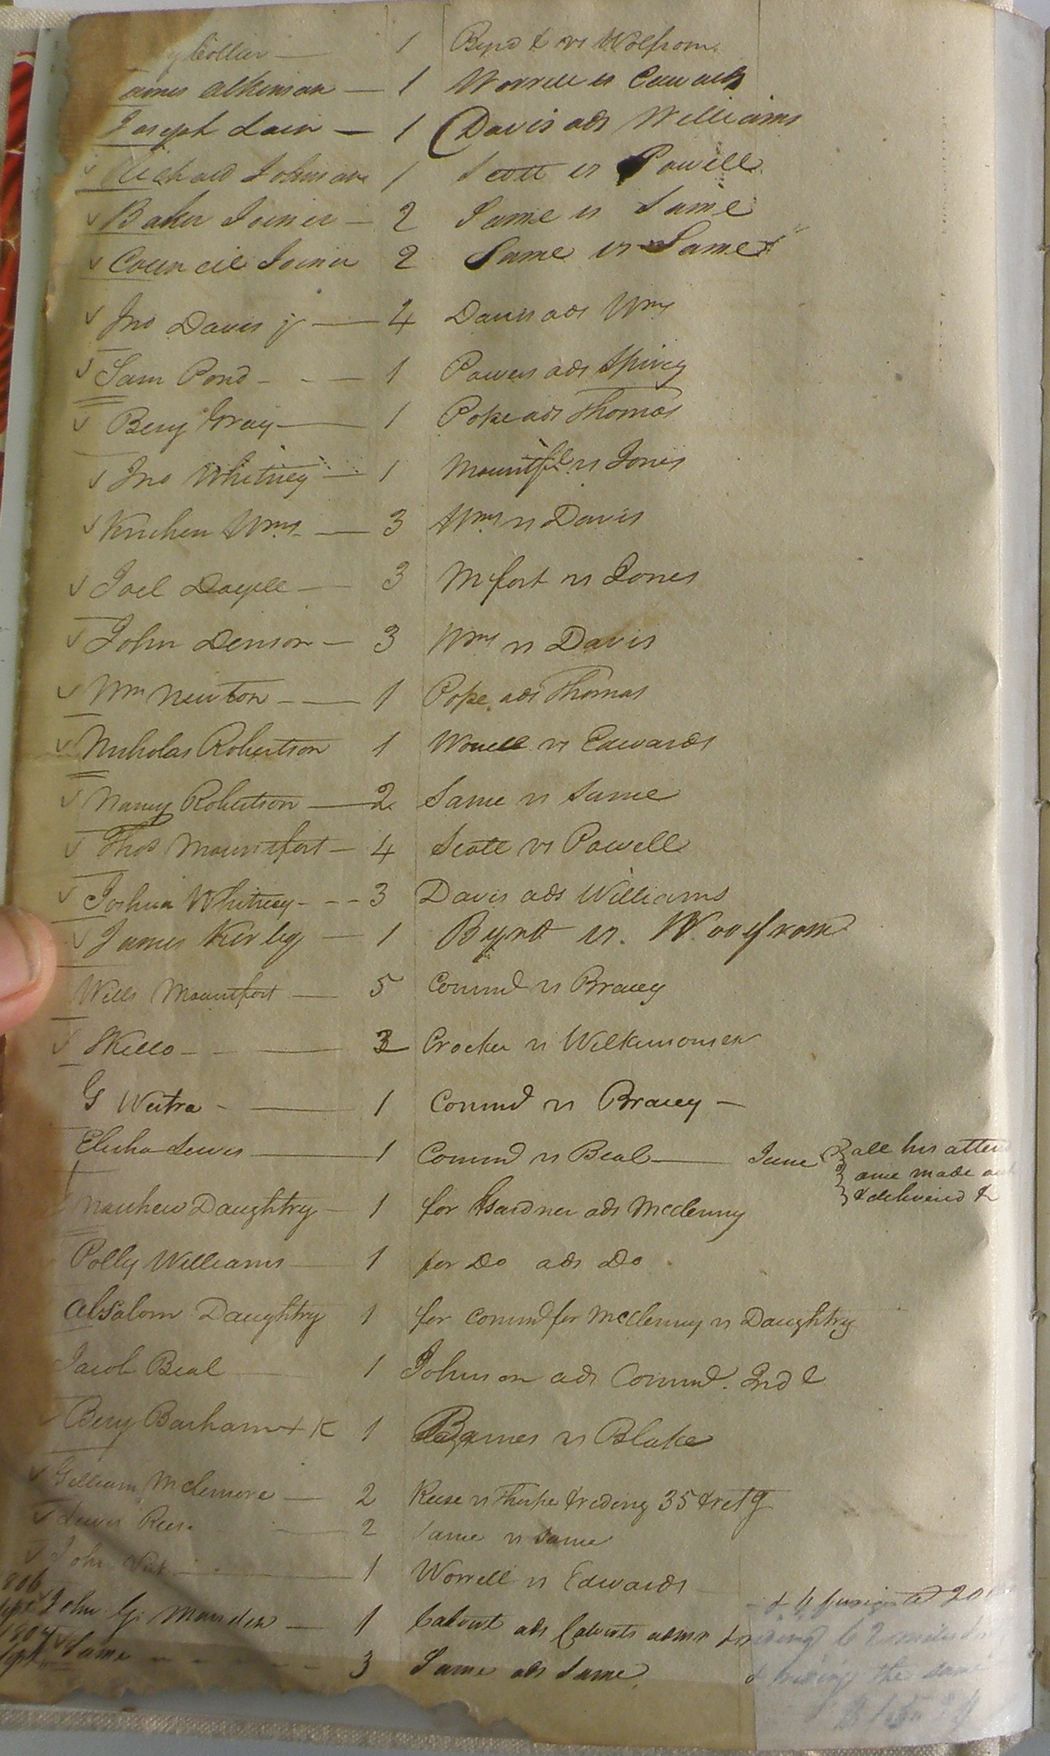 Collier — 1 Byrd & vs Wolfrom
James Atkinson — 1 Worrell vs Edwards
Joseph Lain — 1 (Davis ads Williams
✓ Richard Johnson 1 Scott vs Powell
✓ Baker Joiner — 2 Same vs Same
✓ Council Joiner 2 Same vs Same
✓ Jno Davis jr — 4 Davis ads Wms
✓ Sam Pond - - — 1 Powers ads Spivey
✓ Benj Gray — 1 Pope ads Thomas
✓ Jno Whitney — 1 Mountft vs Jones
✓ Kinchen Wms — 3 Wms vs Davis
✓ Joel Doyell — 3 Mfort vs Jones
✓ John Denson — 3 Wms vs Davis
✓ Wm Newton — 1 Pope ads Thomas
✓ Nicholas Robertson 1 Worrell vs Edwards
✓ Nancy Robertson — 2 Same vs Same
✓ Thos Mountfort — 4 Scott vs Powell
✓ Joshua Whitney - - - 3 Davis ads Williams
✓ James Kirby — 1 Byrd vs. Woolfrom
Wills Mountfort — 5 Commd vs Bracey
✓ — 3 Crocker vs
G — 1 Commd vs Bracey —
Elisha Lewis — 1 Commd vs Beal — June } all his atten
are made out
& delivered
Mathew Daughtry — 1 for Gardner ads McClenny
Polly Williams — 1 for Do ads Do
Absalom Daughtry 1 for Commd for McClenny vs Daughtry
Jacob Beal — 1 Johnson ads Commd. Ind
Benj Barham 1 Barnes vs Blake
✓ William McLemore — 2 Reese vs Thorpe & riding 35 & retg
✓ Lewis Reese — 2 Same vs Same
✓ John — 1 Worrell vs Edwards
John G. — 1 Calvert ads Calverts admr
1807 ✓ Same - - - - 3 Same ads Same & riding the same